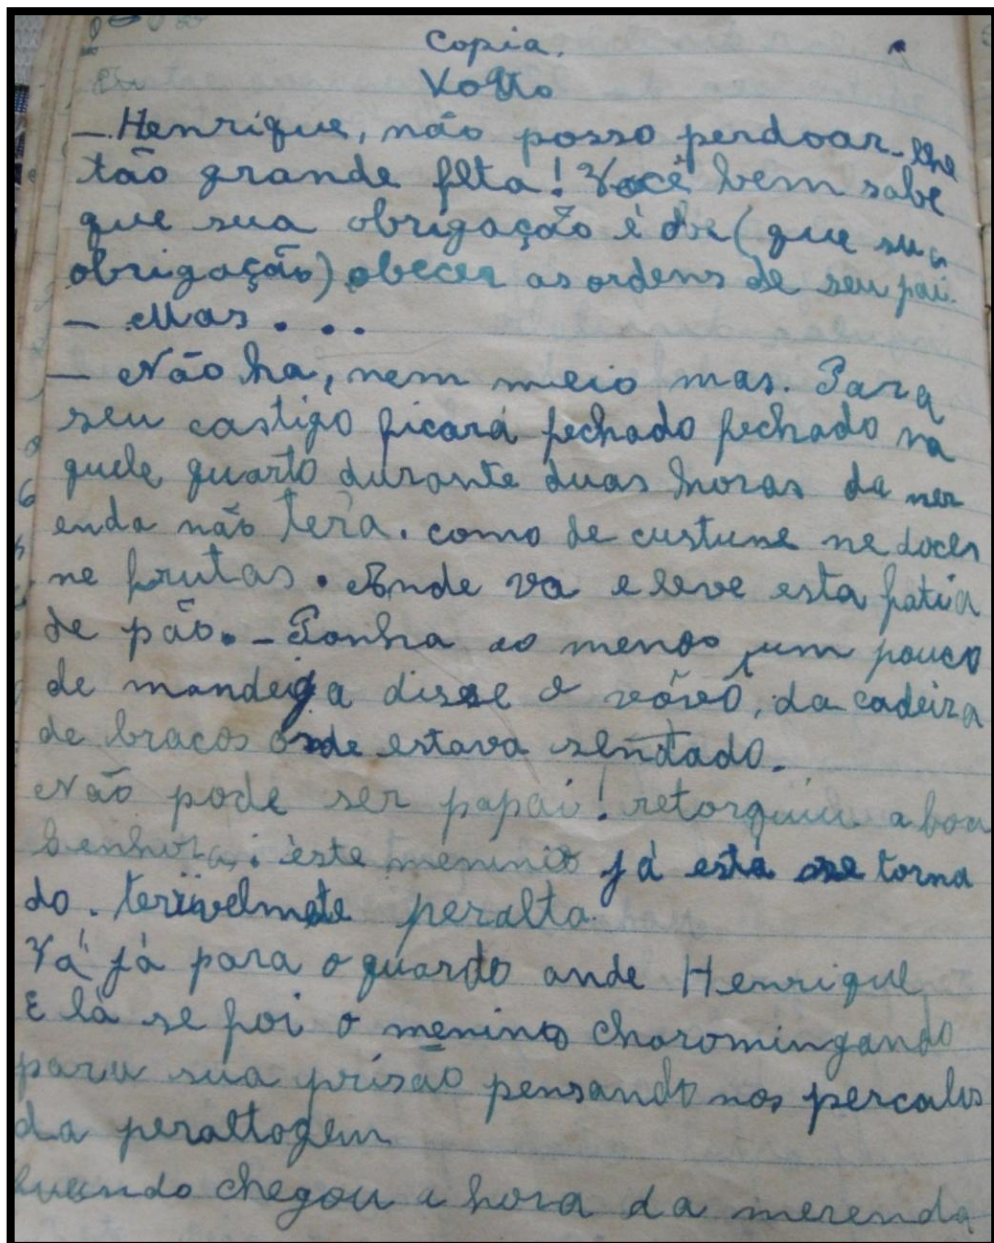 Copia.
— Henrique, não posso perdoar-lhe
tão grande flta! Você bem sabe
que sua obrigação é (que sua
obrigação) obecer as ordens de seu pai.
— Mas . . .
— Não ha, nem meio mas. Para
seu castigo ficará fechado fechado na
quele quarto durante duas horas da mer
enda não terá. como de custume ne doces
ne frutas. Ande va e leve esta fatia
de pão. — Ponha ao menos um pouco
de mandeiga disse o vôvô, da cadeira
de bracos onde estava sentado.
Não pode ser papai! retorquiu a boa
senhora. este menino já está se torna
do. terivelmete peralta.
Vá já para o quardo ande Henrique
E lá se foi o menino choromingando
para sua prisão pensando nos percalos
da peraltogem
quando chegou a hora da merenda